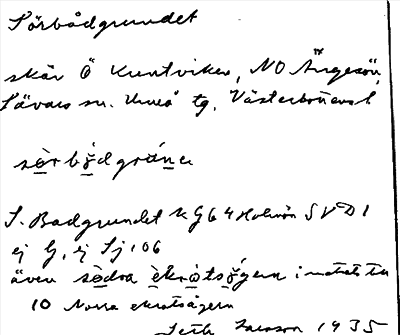 Sörbådgrundet
skär Ö Kuntviken, NO Ängesön,
Sävars sn. Umeå tg, Västerbottensl
sörbådgrúnε
S. Badgrundet KG64 Holmön SVD1
ej G, ej Sj 106
även södra
10 Norra
Seth Larsson 1935